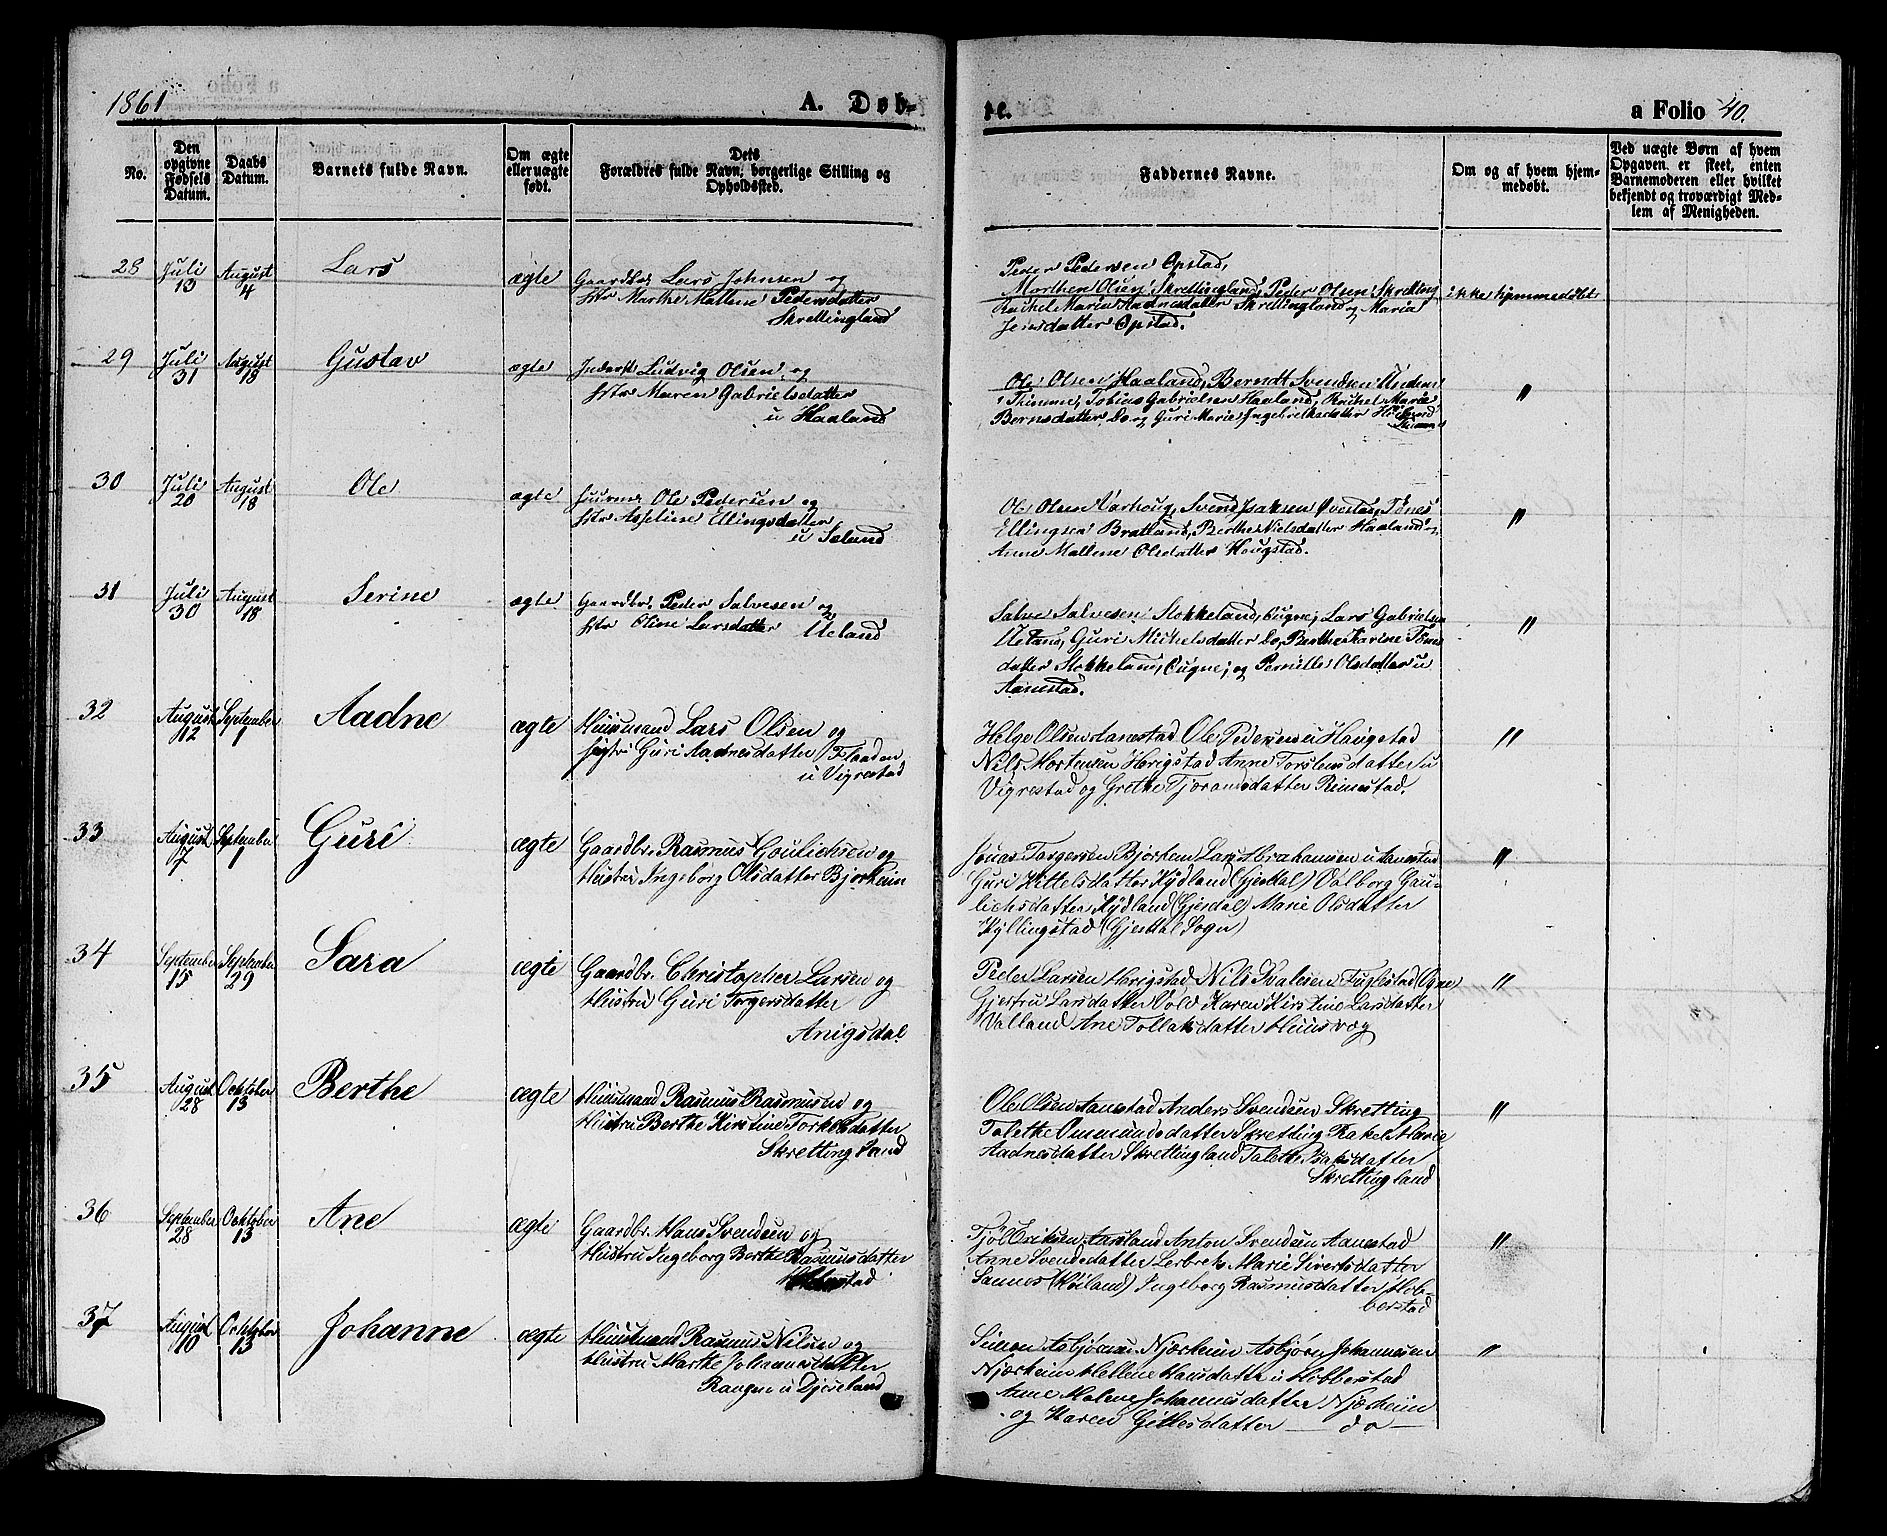 1861 A. Døb- te. a Folio 40.
No. Den opgivne Fødsels Datum. Daabs Datum. Barnets fulde Navn. Om ægte eller uægte født. Dets Forældres fulde Navn, borgerlige Stilling og Opholdssted. Faddernes Navne. Om og af hvem hjemmedøbt. Ved uægte Børn af hvem Opgaven er skeet, enten Barnemoderen eller hvilket bekjendt og troværdigt Medlem af Menigheden.
28 Juli 13 August 4 Lars ægte Gaardbr. Lars Johnsen og
Hstr Marthe Mallene Pedersdatter
Skrettingland
Peder Pedersen Opstad,
Morthen Olsen Skrettingland, Peder Olsen Skretting
Rachel Maria Aadnesdatter Skrettingland og Maria
Jensdatter Opstad.
ikke hjemmedøbt
29 Juli 31 August 18 Gustav ægte Inderst Ludvig Olsen og
Hstr Maren Gabrielsdatter
u Haaland
Ole Olsen Haaland, Berndt Svendsen
Thimme, Tobias Gabrielsen Haaland, Rachel Maria
Bernsdatter Do og Guri Marie Ingebrethsdatter
"
30 Juli 20 August 18 Ole ægte Ole Pedersen og
Hstr Asseline Ellingsdatter
u Søland
Ole Olsen Aarhoug, Svend Isaksen Tønes
Ellingsen Bratland, Berthe Nielsdatter Haaland og
Anne Mallene Olsdatter Hougstad.
"
31 Juli 30 August 18 Serine ægte Gaardbr. Peder Salvesen og
Hstr Oline Larsdatter Ueland
Salve Salvesen Stokkeland, Ougne, Lars Gabrielsen
Ueland, Guri Michelsdatter Do, Berthe Karine Tønes
datter Stokkeland, Ougne, og Pernille Olsdatter u
Aanestad.
"
32 August 12 September 1 Aadne ægte Huusmand Lars Olsen og
Hustru Guri Aadnesdatter Flaaden
u Vigrestad
Helge Olsen Aanestad Ole Pedersen u Haugstad
Nils Mortensen Horigstad Anne Torstensdatter u
Vigrestad og Grethe Tjoransdatter Rimestad.
"
33 August 7 September 1 Guri ægte Gaardbr. Rasmus Goulichsen og
Hustru Ingeborg Olsdatter Bjorheim
Jonas Torgersen Bjorheim Lars Abrahamsen u Aanestad
Guri Kittelsdatter Kydland (Gjesdal) Valborg Gau-
lichsdatter Kydland (Gjesdal) Marie Olsdatter
Kyllingstad (Gjesdal Sogn)
"
34 September 15 September 29 Sara ægte Gaardbr. Christopher Larsen og
Hustru Guri Torgersdatter
Anigsdal
Peder Larsen Horigstad, Nils Fuglestad (Ogne
Gjertru Larsdatter Vold Karen Kirstine Larsdatter
Valland Ane Tollaksdatter Huusvæg
"
35 August 28 Octtober 13 Berthe ægte Huusmand Rasmus Rasmusen og
Hustru Berthe Kirstine Torkelsdatter
Skrettingland
Ole Olsen Aanestad Anders Svendsen Skretting
Talethe Ommundsdatter Skretting Rakel Marie
Aadnesdatter Skrettingland Talethe Isaksdatter
Skrettingland
"
36 September 28 Octtober 13 Ane ægte Gaardbr. Hans Svendsen og
Hustru Ingeborg Berthe Rasmusdatter
Eriksen Aarsland Anton Svendsen Aanestad
Anne Svendsdatter Lerbrek Marie Sivertsdatter
Sannes (Høiland) Ingeborg Rasmusdatter Hob-
berstad
"
37 August 10 Octtober 13 Johanne ægte Huusmand Rasmus Nilsen og
Hustru Marthe Johannesdatter
u Djoseland
Simon Asbjørnsen Njærheim Asbjørn Johannesen
Njærheim Hellene Hansdatter u Hobberstad
Anne Malene Johannesdatter Njærheim
og Karen Gitlesdatter — do —
"